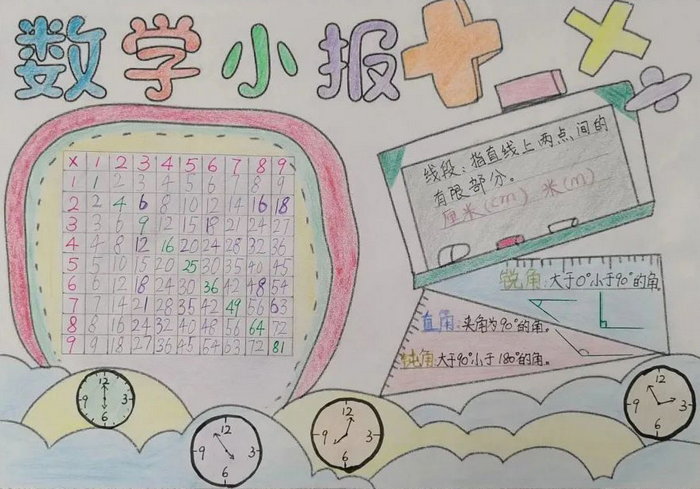 数学小报
× 1 2 3 4 5 6 7 8 9
1 1 2 3 4 5 6 7 8 9
2 2 4 6 8 10 12 14 16 18
3 3 6 9 12 15 18 21 24 27
4 4 8 12 16 20 24 28 32 36
5 5 10 15 20 25 30 35 40 45
6 6 12 18 24 30 36 42 48 54
7 7 14 21 28 35 42 49 56 63
8 8 16 24 32 40 48 56 64 72
9 9 18 27 36 45 54 63 72 81
线段：指直线上两点间的
有限部分。
厘米(cm) 米(m)
锐角：大于0°小于90°的角。
直角：夹角为90°的角。
钝角：大于90°小于180°的角。
12
9 3
6
12
9 3
6
12
9 3
6
12
9 3
6